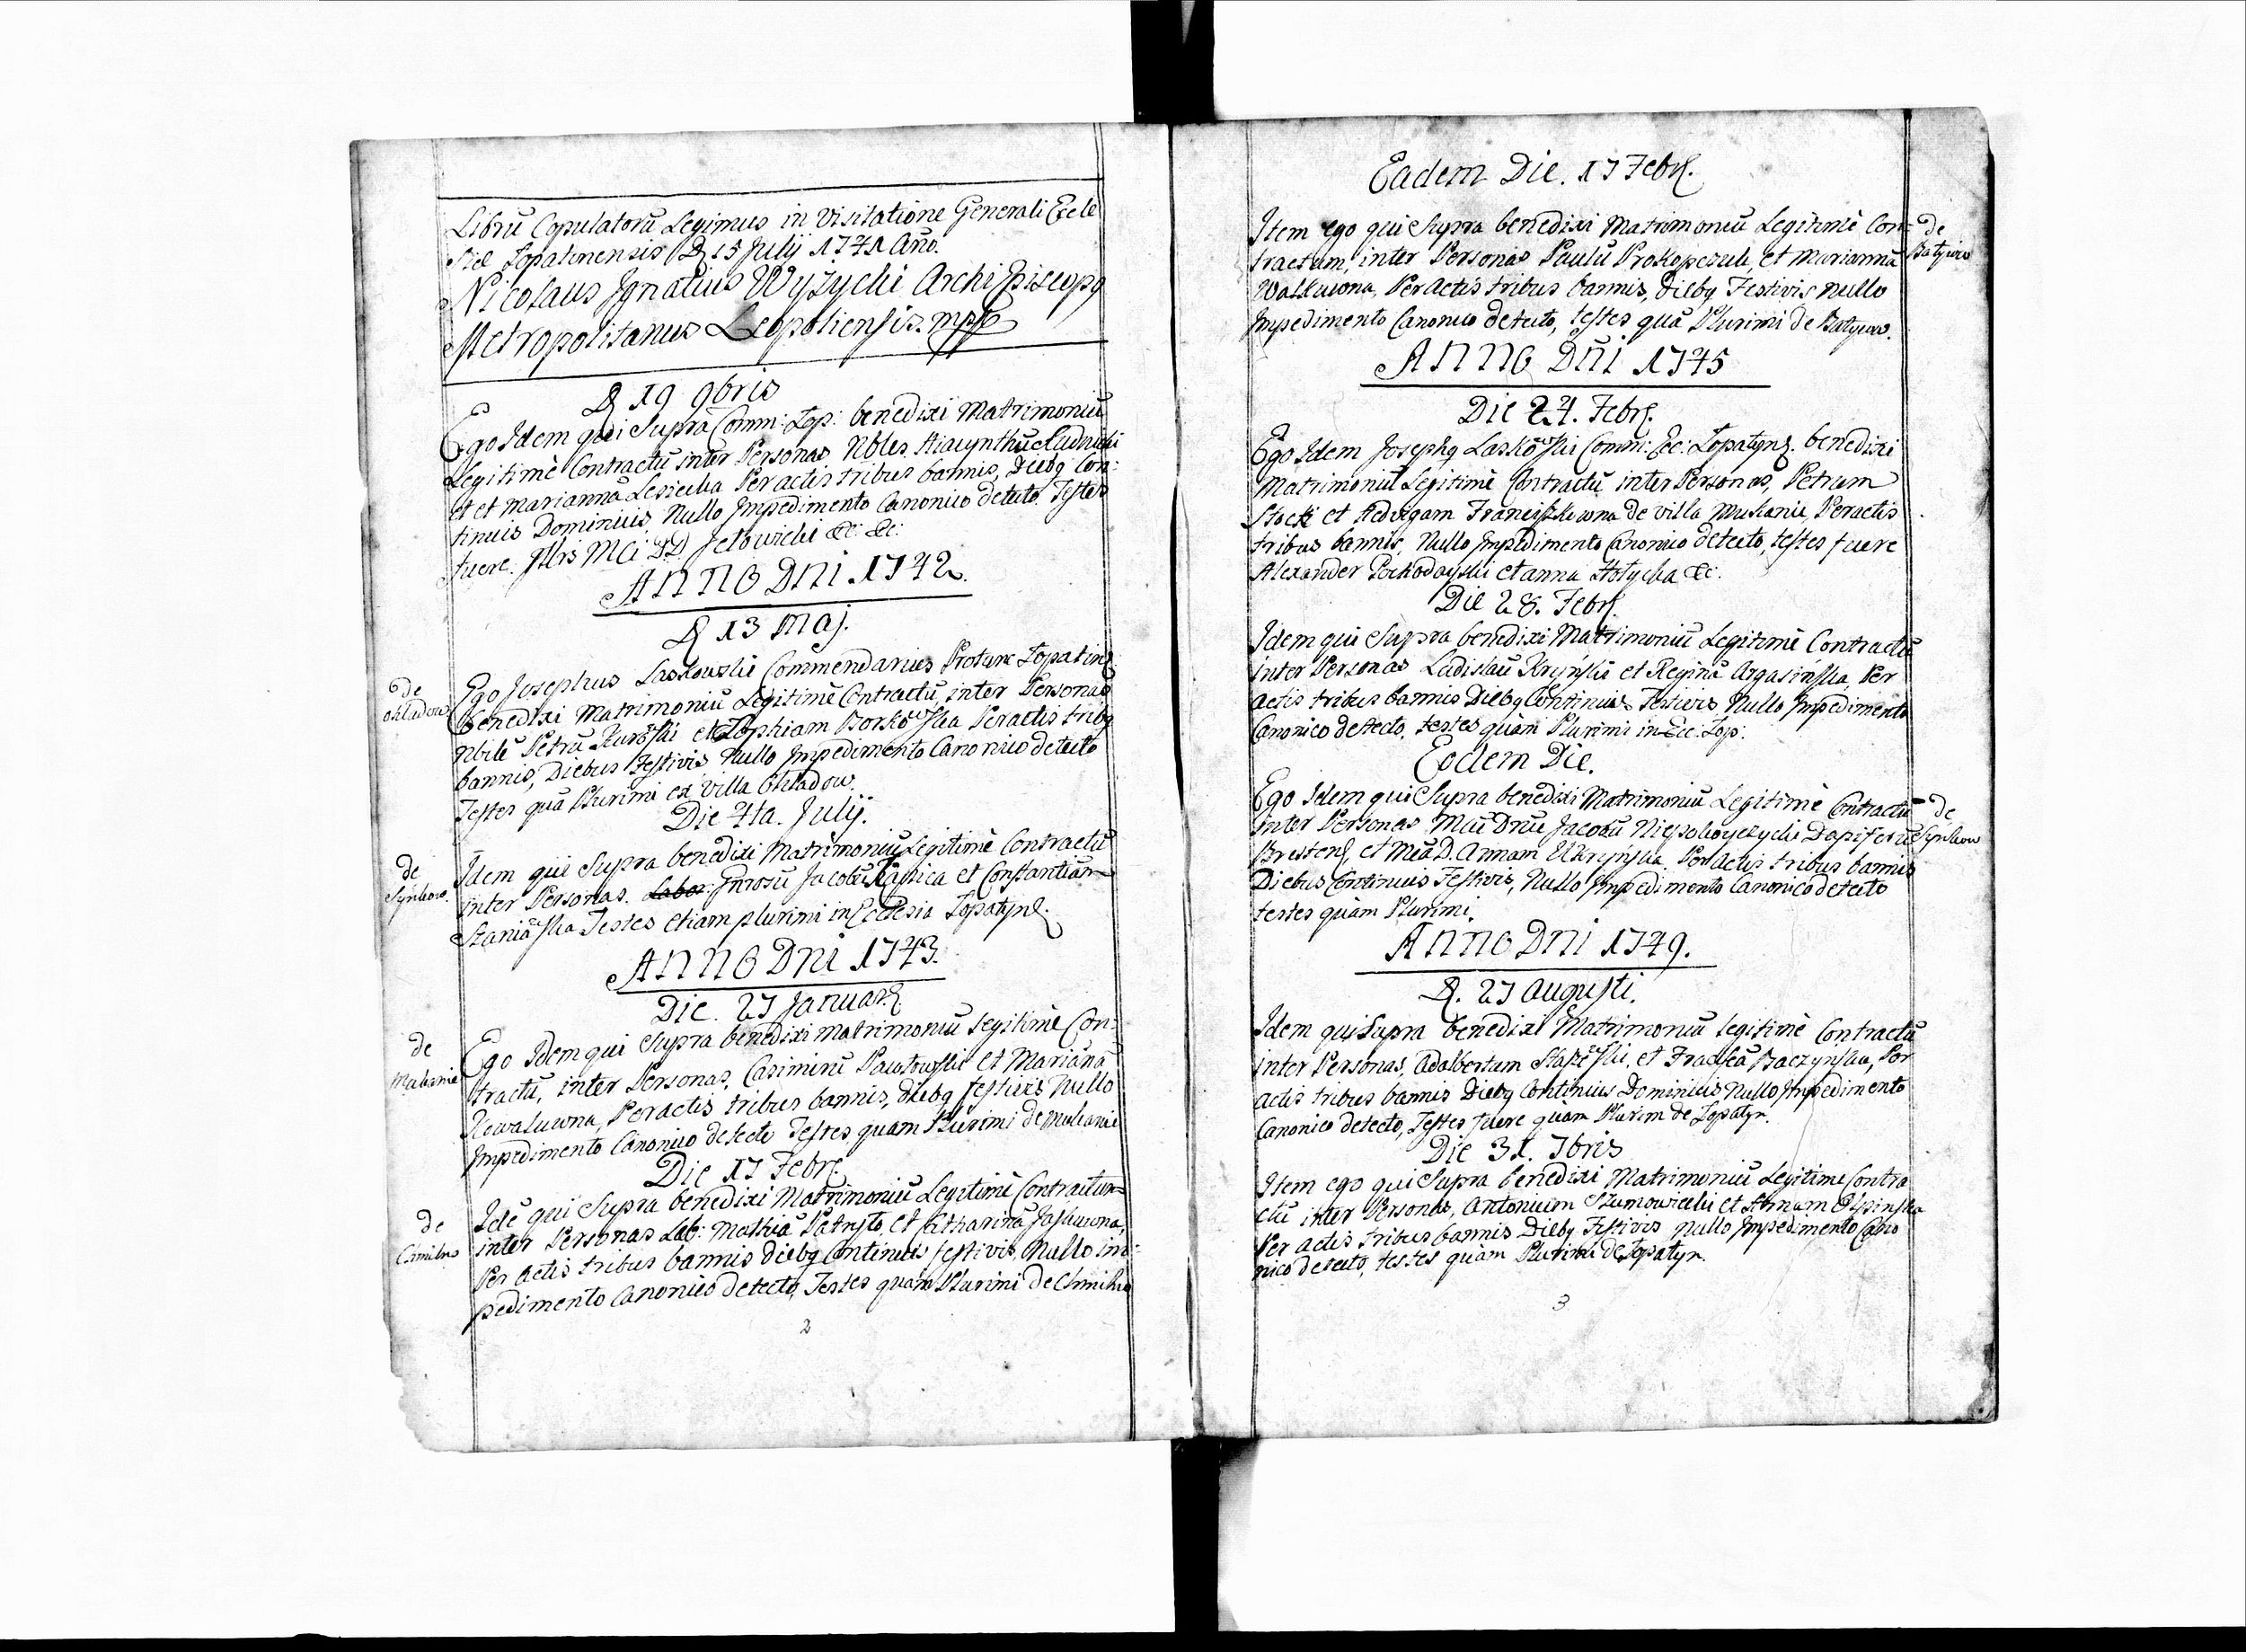 Librū Copulatorū Legimus in Visitatione Generali Eccle
siæ Lopatinensis D 15 Julij 1741 Año.
Nicolaus Ignatius Wyżycki ArchiEpiscopq
Metropolitanus Leopoliensis. mpp
D 19 9bris
Ego Idem qui Supra Comm: Lop: benedixi Matrimoniū
Legitimè Contractū inter Personas Nbles Hiacynthū Rudnicki
et Mariannā Lesiecka Peractis tribus bannis, Diebq Con-
tinuis Dominicis, Nullo Impedimento Canonico detecto. Testes
fuere. Illris Mci DD Jełowicki &c: &c:
ANNO DNI 1742.
D 13 Maj.
de
ohladow
Ego Josephus Laskowski Commendarius Protunc Lopatinę
Benedixi Matrimoniū Legitimè Contractū, inter Personas
Nbile Petrū et Zophiam Borkowska Peractis tribq
bannis, Diebus Festivis Nullo Impedimento Canonico detecto
Testes quā Plurimi ex Villa Ohladow.
Die 4ta. Julij.
de
Synkow
Idem qui Supra benedixi Matrimoniū Legitimè Contractū
inter Personas. Labor: Gnrosū Jacobū et Constantiam
Testes etiam plurimi in Ecclesia Lopatynę.
ANNO DNI 1743.
Die. 27 Januarę
de
Mukanie
Ego Idem qui Supra benedixi matrimoniū legitimè Con-
tractū, inter Personas, Casimirū Pawłowski et Mariānā
Kowaluwna, Peractis tribus bannis, diebq festivis Nullo
Impedimento Canonico detecto Testes, quam Plurimi de Mukanie
Die 17 Febrę.
de
Chmilno
Idē qui Supra benedixi Matrimoniū Legitimè Contractum
inter Personas Lab: Mathiā et Catharinā Jaskuwna,
Per actis tribus bannis diebq Continuis festivis, Nullo im-
pedimento Canonico detecto, Testes quam Plurimi de Chmilno
2
Eadem Die. 17 Febrę.
Item ego qui Supra benedixi Matrimoniū Legitimè Con-
tractum, inter Personas Paulū Prokopczuk, et Mariannā
Walkuwna, Peractis tribus bannis, diebq Festivis nullo
Impedimento Canonico detecto, testes quā Plurimi de Batyiow.
de
Batyiow
ANNO DÑI 1745
Die 24. Febrę.
Ego Idem Josephq Laskowski Comm: Ecc: Lopatynę. benedixi
Matrimoniū Legitimè Contractū inter Personas, Petrum
Stocki et Hedvigam Franciszkuwna de villa Mukanie, Peractis
tribus bannis, Nullo Impedimento Canonico detecto, testes fuere
Alexander et anna &c:
Die 28. Febrę.
Idem qui Supra benedixi Matrimoniū Legitimè Contractū
inter Personas Ladislaū Kryński et Reginā Argasińska Per
actis tribus bannis Diebq Continuis Festivis Nullo Impedimento
Canonico detecto, testes quam Plurimi in Ecc: Lop:
Eodem Die.
Ego Idem qui Supra benedixi Matrimoniū Legitimè Contractū
inter Personas Mcū Dnū Jacobū Niezabytycki Dapiferū
Brestenę, et Mcā D. Annam Ukryńska. Peractis tribus bannis
Diebus Continuis Festivis, Nullo Impedimento Canonico detecto
testes quàm Plurimi.
de
Synkow
ANNO DNI 1749.
D. 27 Augusti.
Idem qui Supra benedixi Matrimoniū legitimè Contractū
inter Personas, Adalbertum et Baczynska, Per
actis tribus bannis Diebq Continuis Dominicis Nullo Impedimento
Canonico detecto, Testes fuere quam Plurim de Lopatyn.
Die 31. 7bris
Item ego qui Supra benedixi Matrimoniū Legitime Contra
ctū inter Personas, Antonium Szumowicki et Annam
Per actis tribus bannis Diebq Festivis nullo Impedimento Cano
nico detecto, testes quàm Plurimi de Lopatyn.
3